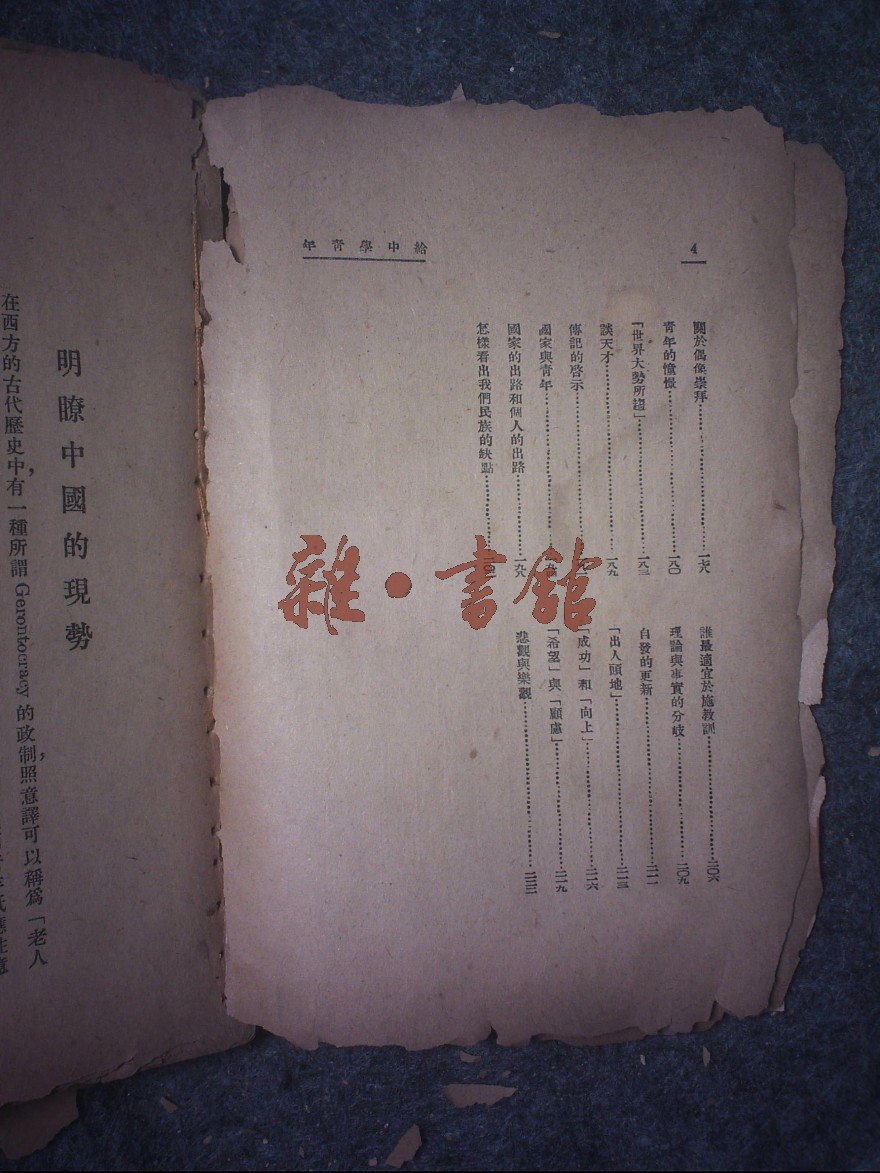 4
給中學青年
關於偶像崇拜……一七八
青年的憧憬……一八〇
「世界大勢所趨」……一八三
談天才……一八九
傳記的啓示……
國家與青年……
國家的出路和個人的出路……一九八
怎樣看出我們民族的缺點……
誰最適宜於施教訓……二〇六
理論與事實的分岐……二〇九
自發的更新……二一一
「出人頭地」……二一三
「成功」和「向上」……二一六
「希望」與「顧慮」……二一九
悲觀與樂觀……二二二
明瞭中國的現勢
在西方的古代歷史中，有一種所謂 Gerontocracy 的政制，照意譯可以稱爲「老人
雜·書館